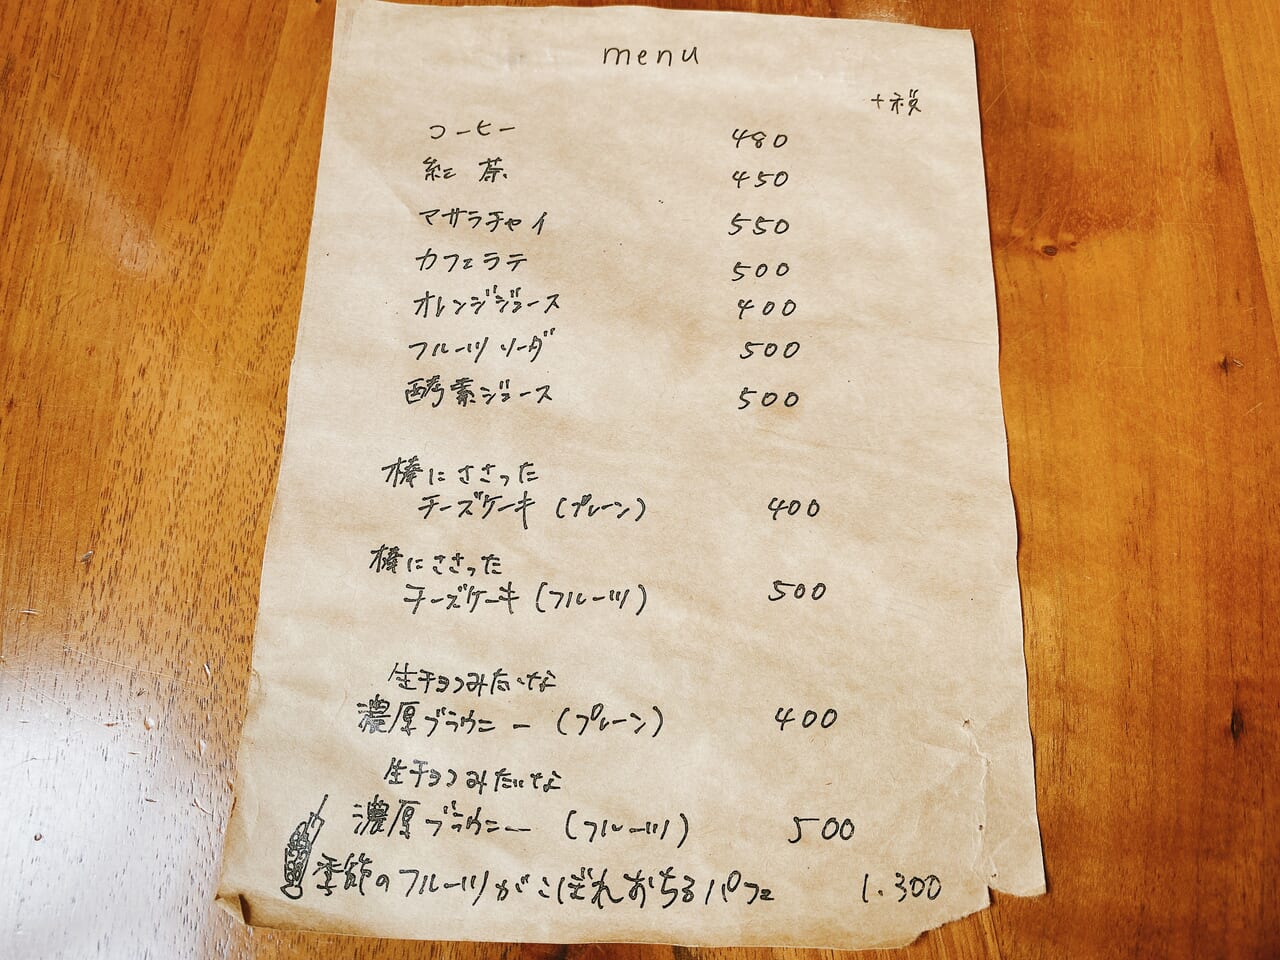 menu
+税
コーヒー 480
紅茶 450
マサラチャイ 550
カフェラテ 500
オレンジジュース 400
フルーツソーダ 500
酵素ジュース 500
棒にささった
チーズケーキ(プレーン) 400
棒にささった
チーズケーキ(フルーツ) 500
生チョコみたいな
濃厚ブラウニー(プレーン) 400
生チョコみたいな
濃厚ブラウニー(フルーツ) 500
季節のフルーツがこぼれおちるパフェ 1.300